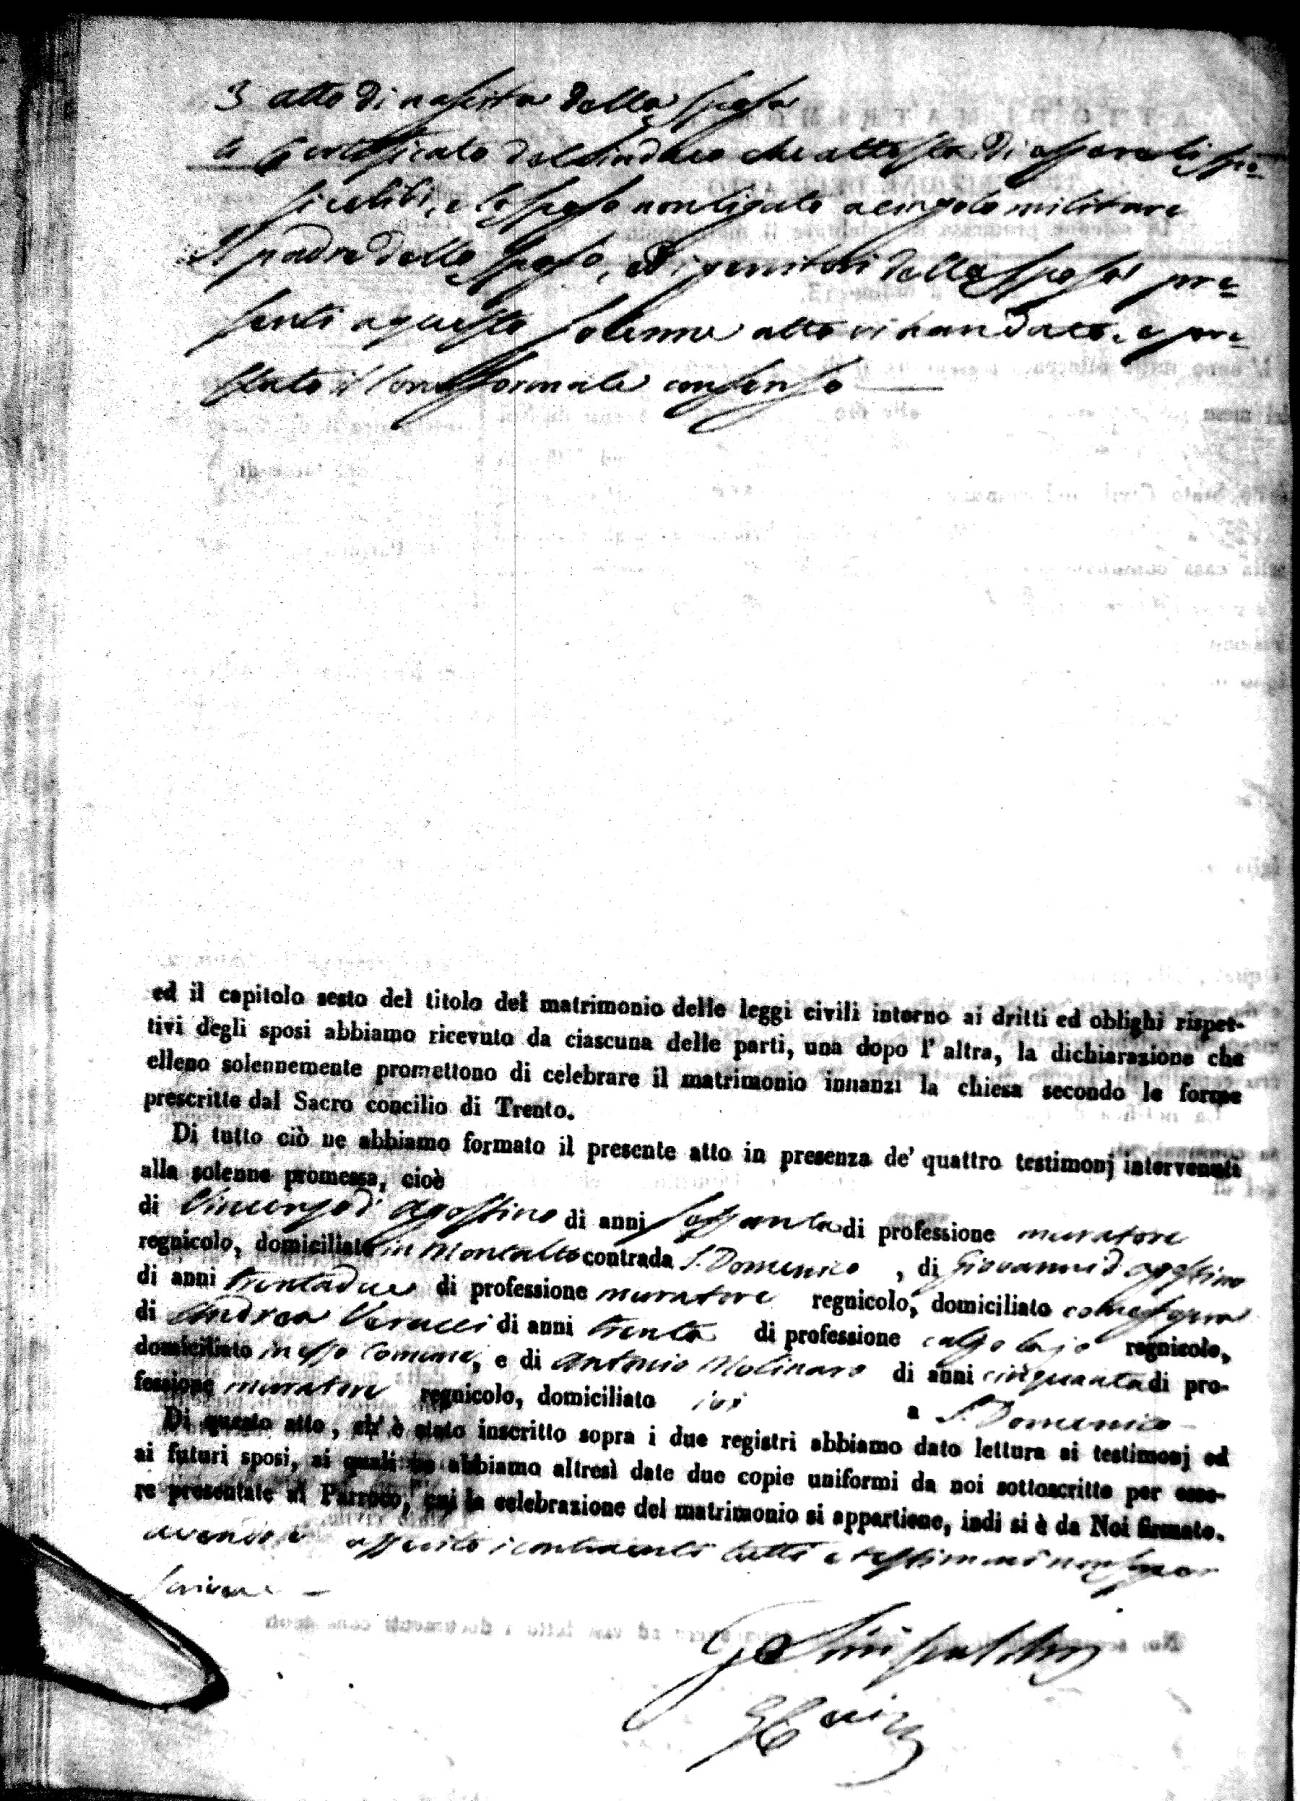 3 atto di nascita della sposa
4 Certificato del Sindaco che attesta di essere li spo-
si celibi, e lo sposo non ligato a cingolo militare
Il padre dello sposo, ed i genitori della sposa pre-
senti a questo solenne atto vi han dato, e pre-
stato il loro formale consenso
ed il capitolo sesto del titolo del matrimonio delle leggi civili intorno ai dritti ed oblighi rispet-
tivi degli sposi abbiamo ricevuto da ciascuna delle parti, una dopo l' altra, la dichiarazione che
elleno solennemente promettono di celebrare il matrimonio innanzi la chiesa secondo le forme
prescritte dal Sacro concilio di Trento.
Di tutto ciò ne abbiamo formato il presente atto in presenza de' quattro testimonj intervenuti
alla solenne promessa, cioè
di Vincenzo d'Agostino di anni sessanta di professione muratore
regnicolo, domiciliato in Montalto contrada S. Domenico , di Giovanni d'Agostino
di anni trentadue di professione muratore regnicolo, domiciliato come sopra
di Andrea Veracci di anni trenta di professione calzolajo regnicolo,
domiciliato in esso Comune, e di Antonio Molinaro di anni cinquanta di pro-
fessione muratore regnicolo, domiciliato ivi a S. Domenico
Di questo atto, ch' è stato inscritto sopra i due registri abbiamo dato lettura ai testimonj ed
ai futuri sposi, ai quali ne abbiamo altresì date due copie uniformi da noi sottoscritte per esse-
re presentate al Parroco, cui la celebrazione del matrimonio si appartiene, indi si è da Noi firmato.
avendo asserito i contraenti tutti e testimoni non saper
scrivere